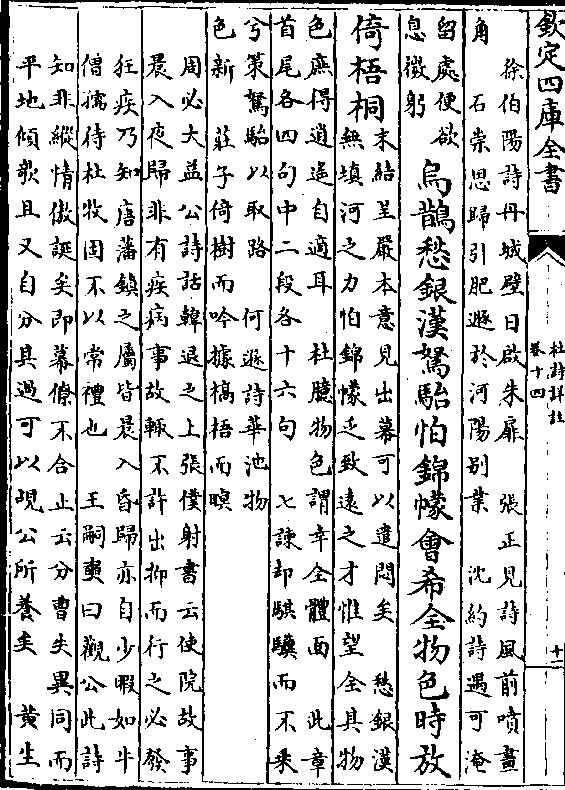 欽定四庫全書
杜詩詳註
卷十四
十二
徐伯陽詩丹城壁日啟朱扉　張正見詩風前噴畫
角　石崇思歸引肥遯於河陽别業　沈約詩遇可淹
留處便欲
息微躬
烏鵲愁銀漢駑駘怕錦幪會希全物色時放
倚梧桐
末結呈嚴本意見出幕可以遣悶矣　愁銀漢
無填河之力怕錦幪乏致遠之才惟望全其物
色庶得逍遥自適耳　杜臆物色謂幸全體面　此章
首尾各四句中二段各十六句　七諫却騏驥而不乗
兮策駑駘以取路　何遜詩華池物
色新　莊子倚樹而吟據槁梧而瞑
周必大益公詩話韓退之上張僕射書云使院故事
晨入夜歸非有疾病事故輒不許出抑而行之必發
狂疾乃知唐藩鎮之屬皆晨入昏歸亦自少暇如牛
僧孺待杜牧固不以常禮也　王嗣奭曰觀公此詩
知非縱情傲誕矣即幕僚不合止云分曹失異同而
平地傾欹且又自分其過可以覘公所養矣　黄生